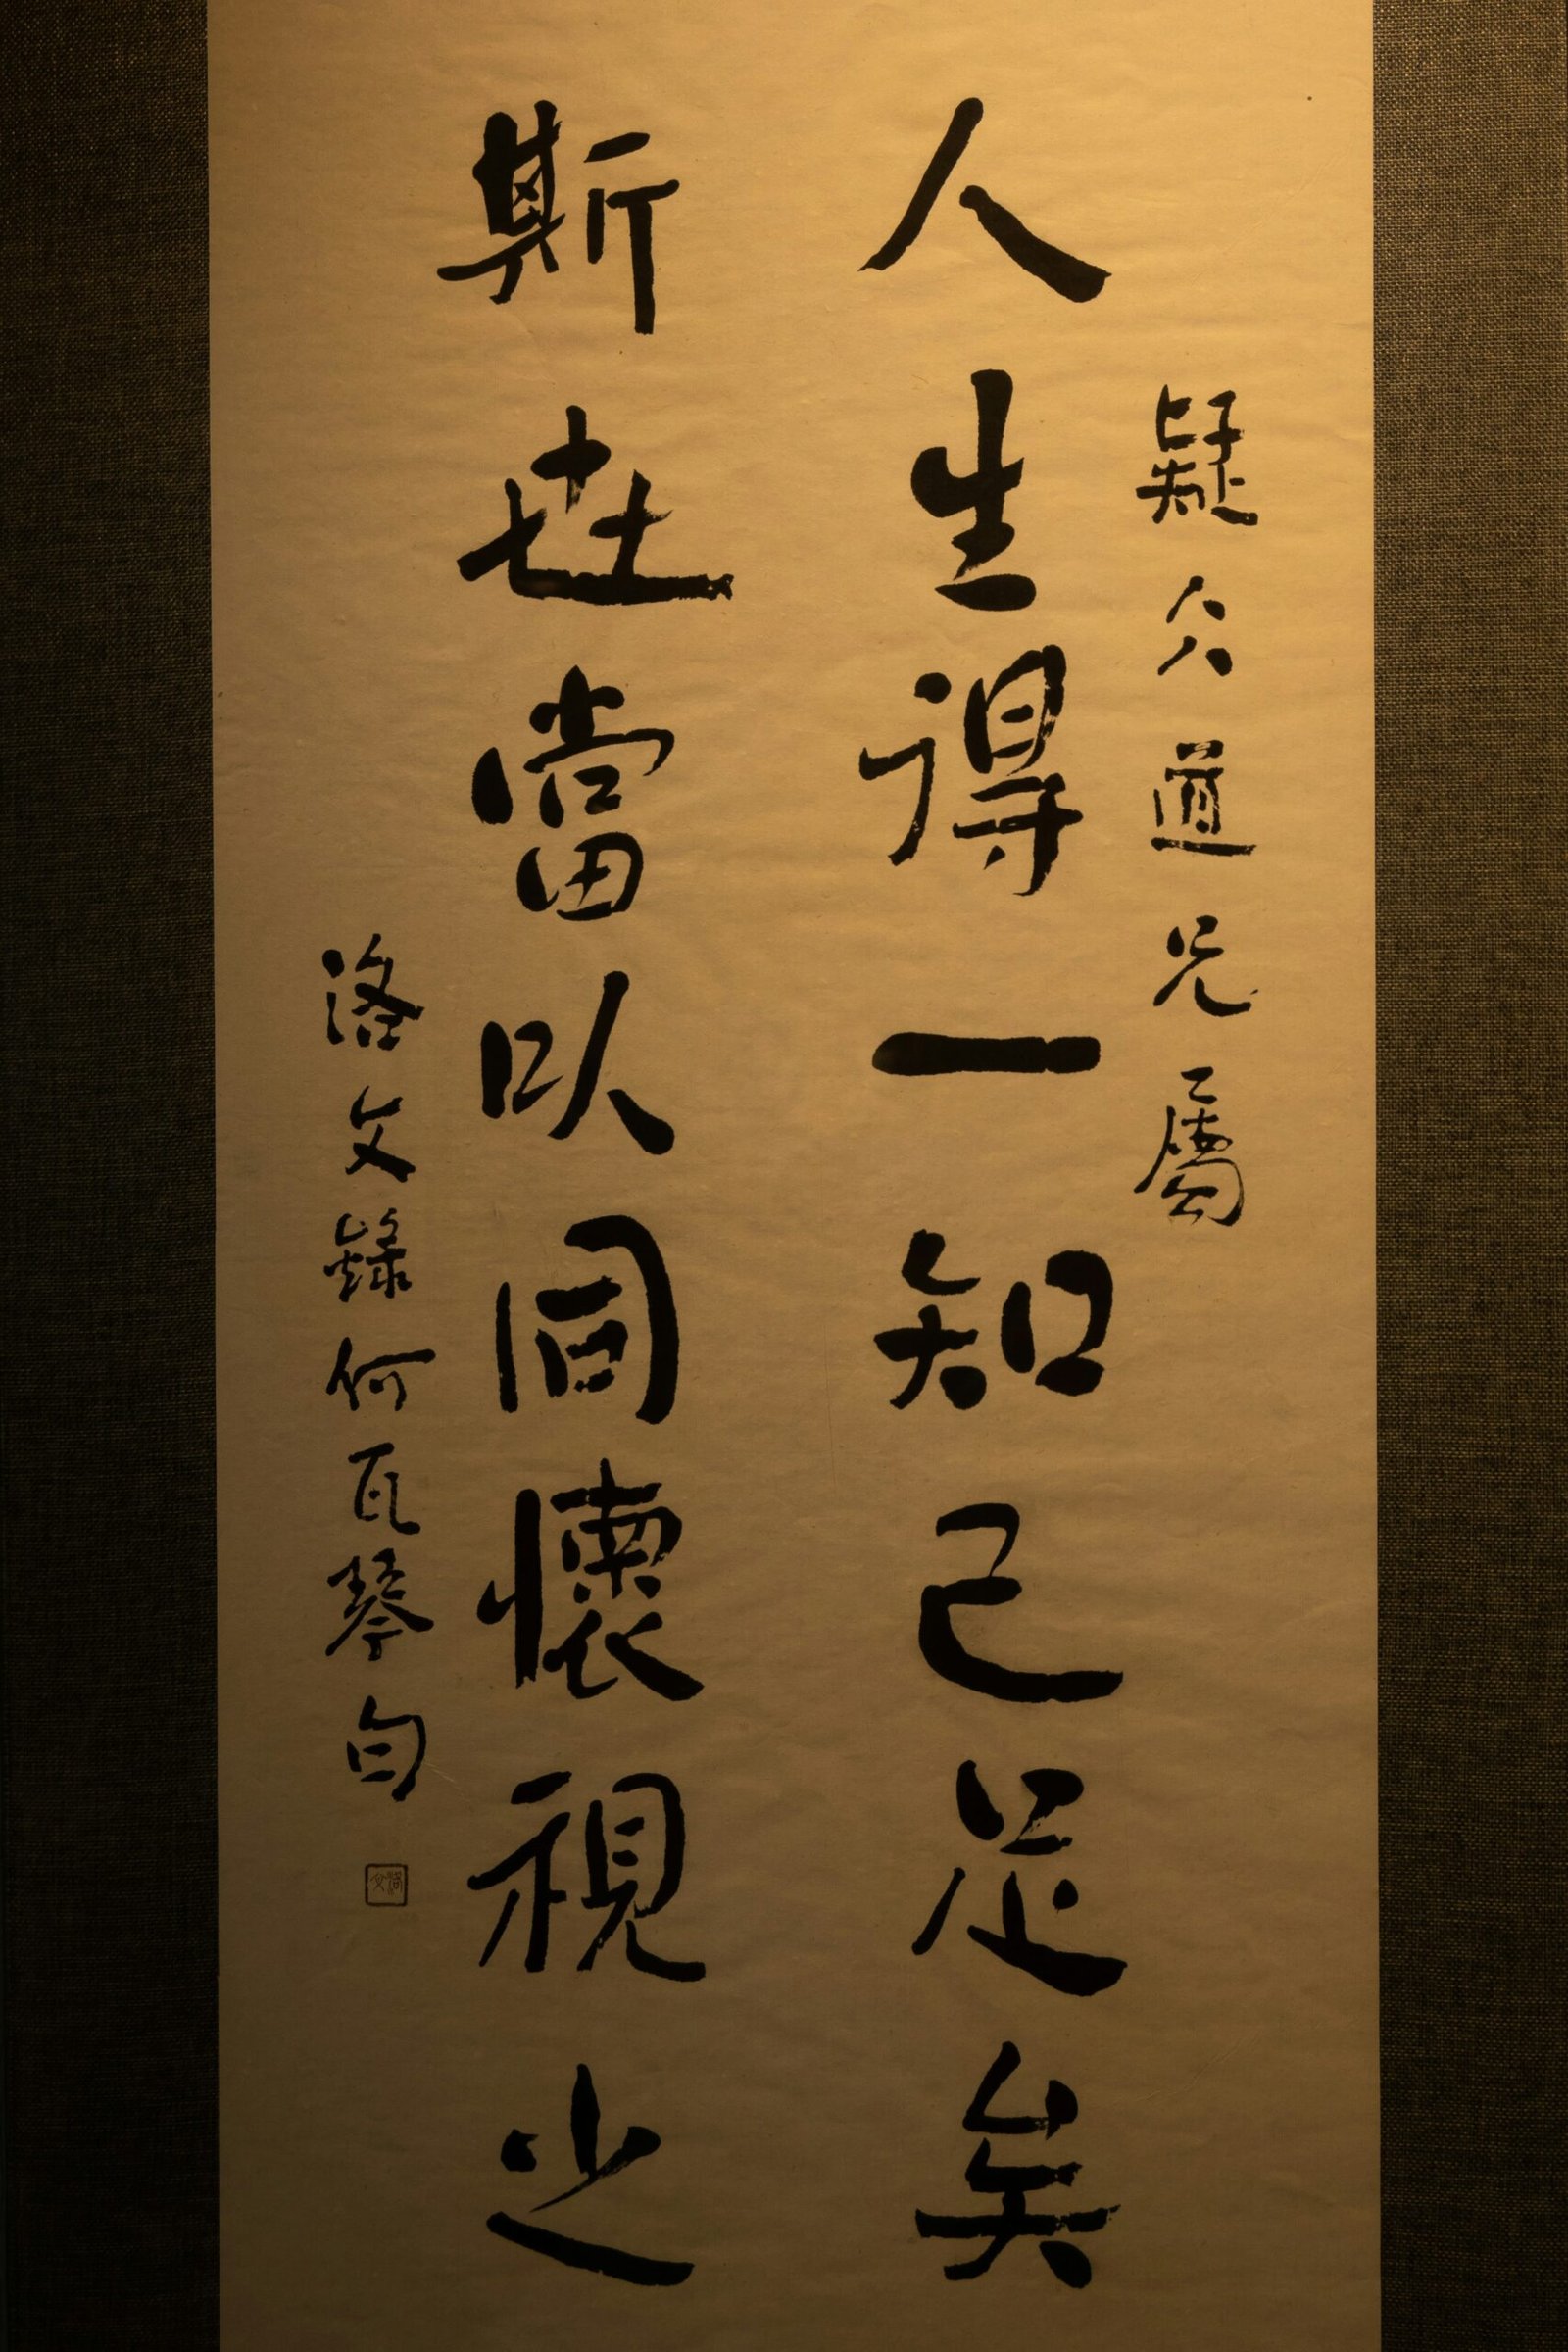 疑仌道兄屬
人生得一知己足矣
斯世當以同懷視之
洛文録何瓦琴句
洛文